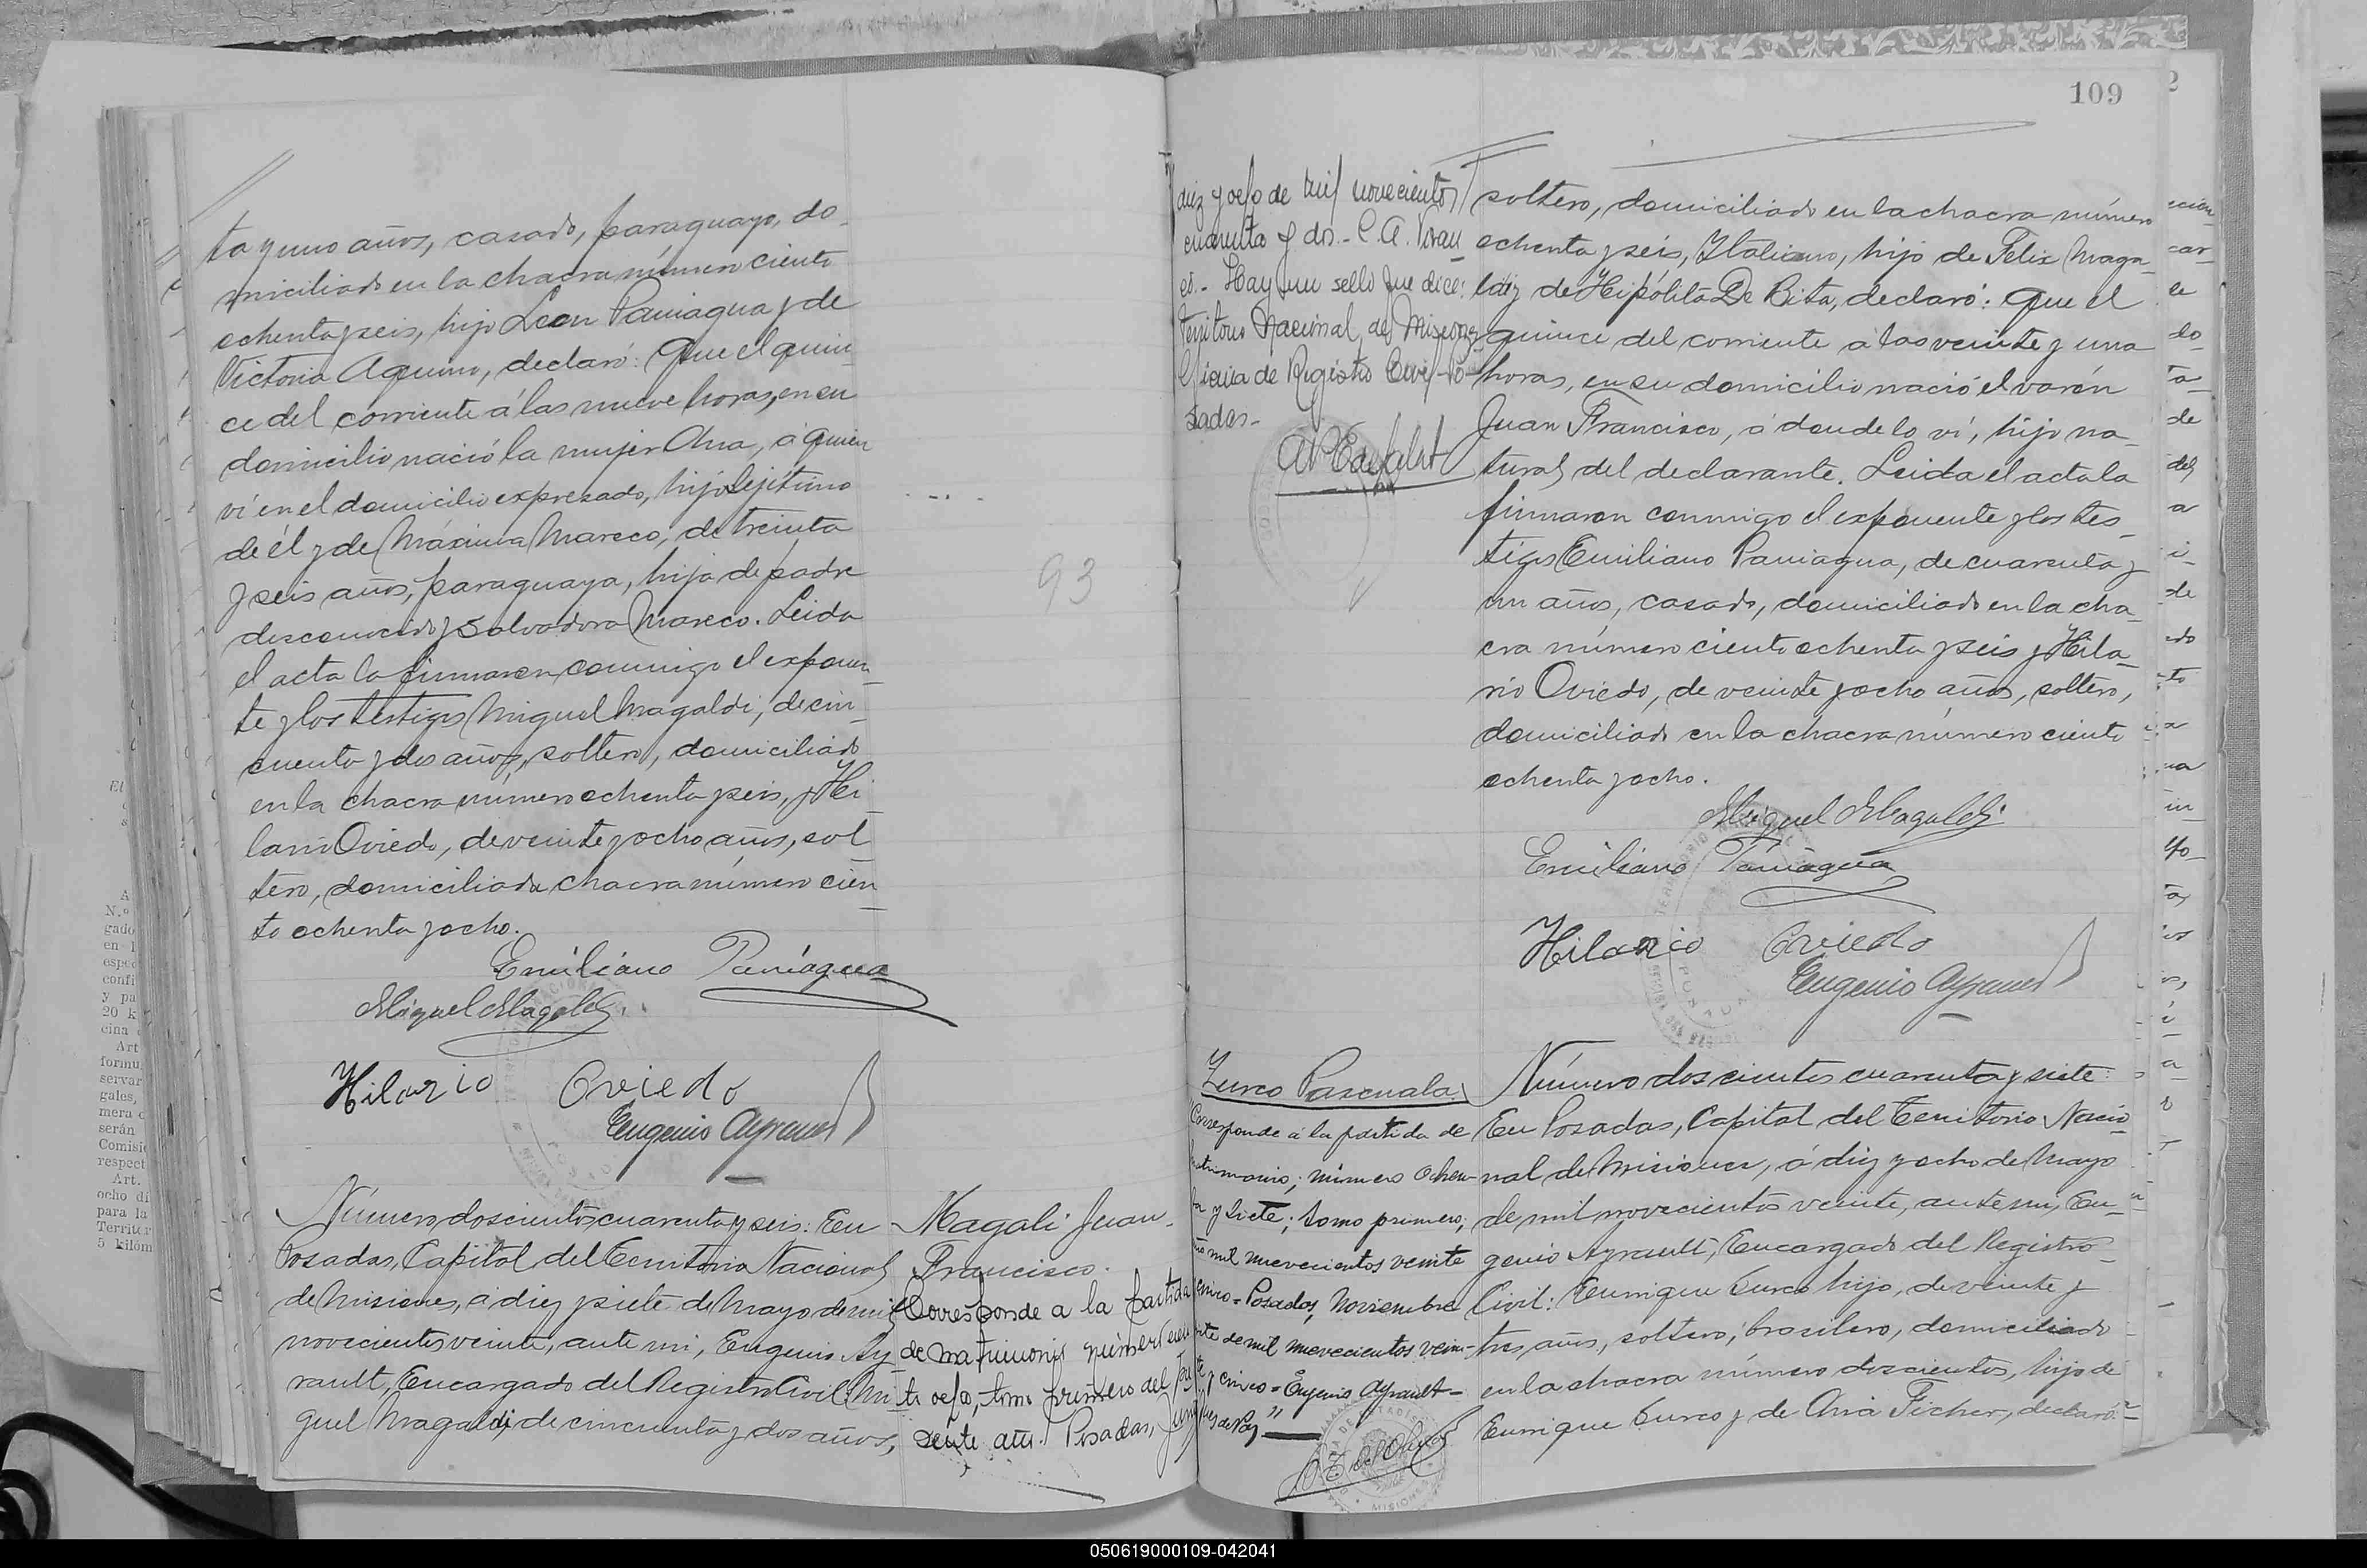 ta y uno años, casado, paraguayo, do-
miciliado en la chacra número ciento
ochenta y seis, hijo Leon Paniagua y de
Victoria Aquino, declaró: Que el quin-
ce del corriente á las nueve horas, en su
domicilio nació la mujer Ana, á quien
ví en el domicilio expresado, hijo lejítimo
de él y de Máxima Mareco, de treinta
y seis años, paraguaya, hija de padre
desconocido y Salvadora Mareco. Leida
el acta la firmaron conmigo el exponen-
te y los testigos Miguel Magaldi, de cin-
cuenta y dos años, soltero, domiciliado
en la chacra número ochenta y seis, y Hi-
lario Oviedo, de veinte y ocho años, sol-
tero, domiciliado chacra número cien-
to ochenta y ocho.
Emiliano Paniagua
Miguel Magaldi
Hilario Oviedo
Eugenio Ayrault
93
Número doscientos cuarenta y seis: En
Posadas, Capital del Territorio Nacional
de Misiones, á diez y siete de Mayo de mil
novecientos veinte, ante mi, Eugenio Ay-
rault, Encargado del Registro Civil: Mi-
guel Magaldi, de cincuenta y dos años,
Magali Juan
Francisco.
Corresponde a la partida
de matrimonio número
te ocho, tomo primero del pre-
sente año. Posadas, Junio
109
diez y ocho de mil novecientos
cuarenta y dos.-
Hay un sello que dice:
Territorio Nacional de Misiones
Oficina de Registro Civil Po-
sadas-
soltero, domiciliado en la chacra número
ochenta y seis, Italiano, hijo de Felix Maga-
ldi y de Hipólita De Bita, declaró: Que el
quince del corriente á las veinte y una
horas, en su domicilio nació el varón
Juan Francisco, á donde lo ví, hijo na-
tural del declarante. Leida el acta la
firmaron conmigo el exponente y los tes-
tigos Emiliano Paniagua, de cuarenta y
un años, casado, domiciliado en la cha-
cra número ciento ochenta y seis y Hila-
rio Oviedo, de veinte y ocho años, soltero,
domiciliado en la chacra número ciento
ochenta y ocho.
Miguel Magaldi
Emiliano Paniagua
Hilario Oviedo
Eugenio Ayrault
Zurco Pascuala
Corresponde á la partida de
matrimonio; número ochen-
ta y siete; tomo primero;
año mil nuevecientos veinte
cinco = Posadas, Noviembre
de mil nuevecientos vein-
te y cinco = Eugenio Ayrault =
Juez de Paz
Número doscientos cuarenta y siete:
En Posadas, Capital del Territorio Nacio-
nal de Misiones, á diez y ocho de Mayo
de mil novecientos veinte, ante mi, Eu-
genio Ayrault, Encargado del Registro
Civil: Enrique Zurco hijo, de veinte y
tres años, soltero, brasilero, domiciliado
en la chacra número doscientos, hijo de
Enrique Zurco y de Ana Ficher, declaró:
050619000109-042041